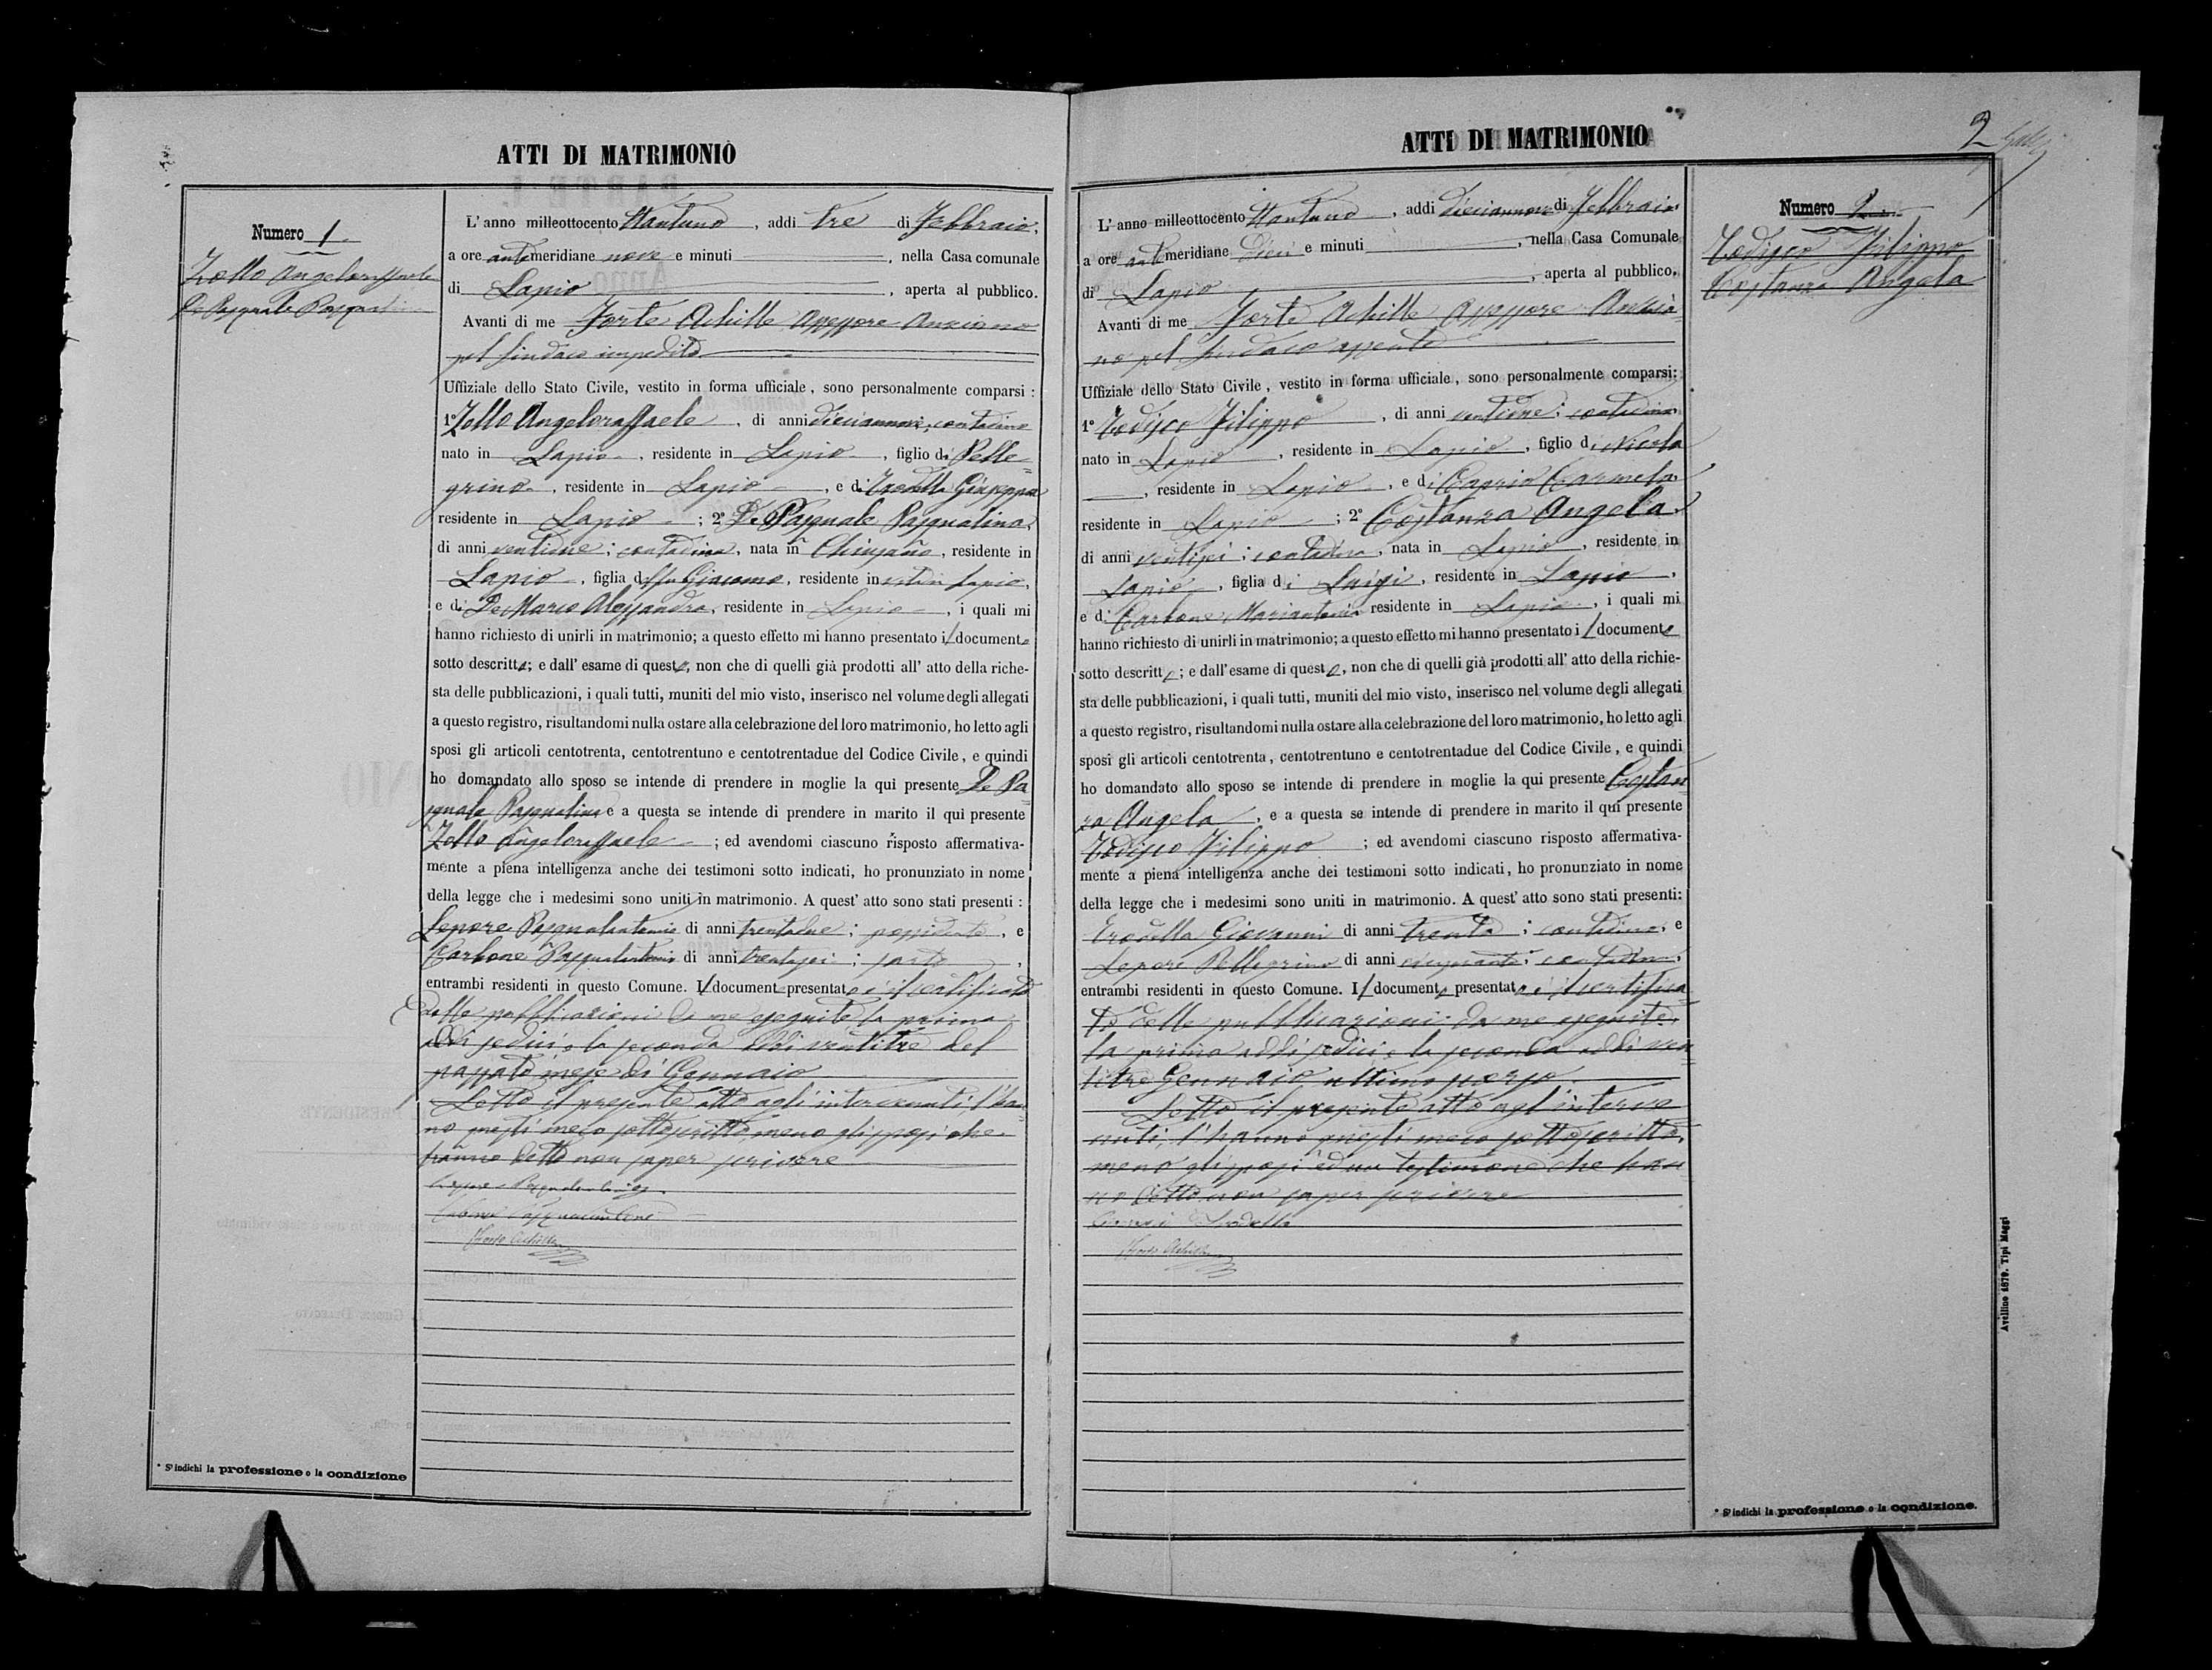 ATTI DI MATRIMONIO
Numero 1
Zollo Angeloraffaele
De Pasquale Pasqualina
L'anno milleottocento ottantuno, addì tre di Febbraio,
a ore antimeridiane nove e minuti , nella Casa comunale
di Lapio , aperta al pubblico.
Avanti di me Forte Achille Assessore Anziano
pel Sindaco impedito
Uffiziale dello Stato Civile, vestito in forma ufficiale, sono personalmente comparsi:
1° Zollo Angeloraffaele, di anni diciannove, contadino
nato in Lapio, residente in Lapio, figlio di Pelle=
grino, residente in Lapio, e di Trodella Giuseppa
residente in Lapio; 2° De Pasquale Pasqualina,
di anni ventidue; contadina, nata in Chiusano, residente in
Lapio, figlia del fu Giacomo, residente in vita in Lapio,
e di De Marco Alessandra, residente in Lapio, i quali mi
hanno richiesto di unirli in matrimonio; a questo effetto mi hanno presentato il documento
sotto descritto; e dall' esame di questo, non che di quelli già prodotti all' atto della riche-
sta delle pubblicazioni, i quali tutti, muniti del mio visto, inserisco nel volume degli allegati
a questo registro, risultandomi nulla ostare alla celebrazione del loro matrimonio, ho letto agli
sposi gli articoli centotrenta, centotrentuno e centotrentadue del Codice Civile, e quindi
ho domandato allo sposo se intende di prendere in moglie la qui presente De Pa=
squale Pasqualina e a questa se intende di prendere in marito il qui presente
Zollo Angeloraffaele; ed avendomi ciascuno risposto affermativa-
mente a piena intelligenza anche dei testimoni sotto indicati, ho pronunziato in nome
della legge che i medesimi sono uniti in matrimonio. A quest' atto sono stati presenti:
Lepore Pasqualantonio di anni trentadue; possidente, e
Carbone Pasqualantonio di anni trentasei; sarto,
entrambi residenti in questo Comune. Il documento presentato è il certificato
delle pubblicazioni da me eseguite la prima
addì sedici e la seconda addì ventitre del
passato mese di Gennaio
Letto il presente atto agli intervenuti, l'han=
no questi meco sottoscritto meno gli sposi che
hanno detto non saper scrivere
Lepore Pasqualantonio
Carbone Pasqualantonio
Forte Achille
* S'indichi la professione o la condizione
ATTI DI MATRIMONIO
2
Numero 2
Todisco Filippo
Costanza Angela
L'anno milleottocento ottantuno, addì diciannove di Febbraio,
a ore antimeridiane dieci e minuti , nella Casa Comunale
di Lapio , aperta al pubblico.
Avanti di me Forte Achille Assessore Anzia=
no pel Sindaco assente
Uffiziale dello Stato Civile, vestito in forma ufficiale, sono personalmente comparsi:
1° Todisco Filippo, di anni ventidue; contadino
nato in Lapio, residente in Lapio, figlio di Nicola
, residente in Lapio, e di Caprio Carmela
residente in Lapio; 2° Costanza Angela,
di anni ventisei; contadina, nata in Lapio, residente in
Lapio, figlia di Luigi, residente in Lapio,
e di Carbone Mariantonia residente in Lapio, i quali mi
hanno richiesto di unirli in matrimonio; a questo effetto mi hanno presentato il documento
sotto descritto; e dall' esame di questo, non che di quelli già prodotti all' atto della richie-
sta delle pubblicazioni, i quali tutti, muniti del mio visto, inserisco nel volume degli allegati
a questo registro, risultandomi nulla ostare alla celebrazione del loro matrimonio, ho letto agli
sposi gli articoli centotrenta, centotrentuno e centotrentadue del Codice Civile, e quindi
ho domandato allo sposo se intende di prendere in moglie la qui presente Costan=
za Angela, e a questa se intende di prendere in marito il qui presente
Todisco Filippo; ed avendomi ciascuno risposto affermativa-
mente a piena intelligenza anche dei testimoni sotto indicati, ho pronunziato in nome
della legge che i medesimi sono uniti in matrimonio. A quest' atto sono stati presenti:
Trodella Giovanni di anni trenta; contadino, e
Lepore Pellegrino di anni cinquanta; contadino,
entrambi residenti in questo Comune. Il documento presentato è il certifica=
to delle pubblicazioni da me eseguite,
la prima addì sedici e la seconda addì ven=
titre Gennaio ultimo scorso
Letto il presente atto agl'interve=
nuti, l'hanno questi meco sottoscritto,
meno gli sposi ed un testimone che han=
no detto non saper scrivere
Giovanni Trodella
Forte Achille
* S'indichi la professione o la condizione.
Avellino 1879. Tipi Maggi